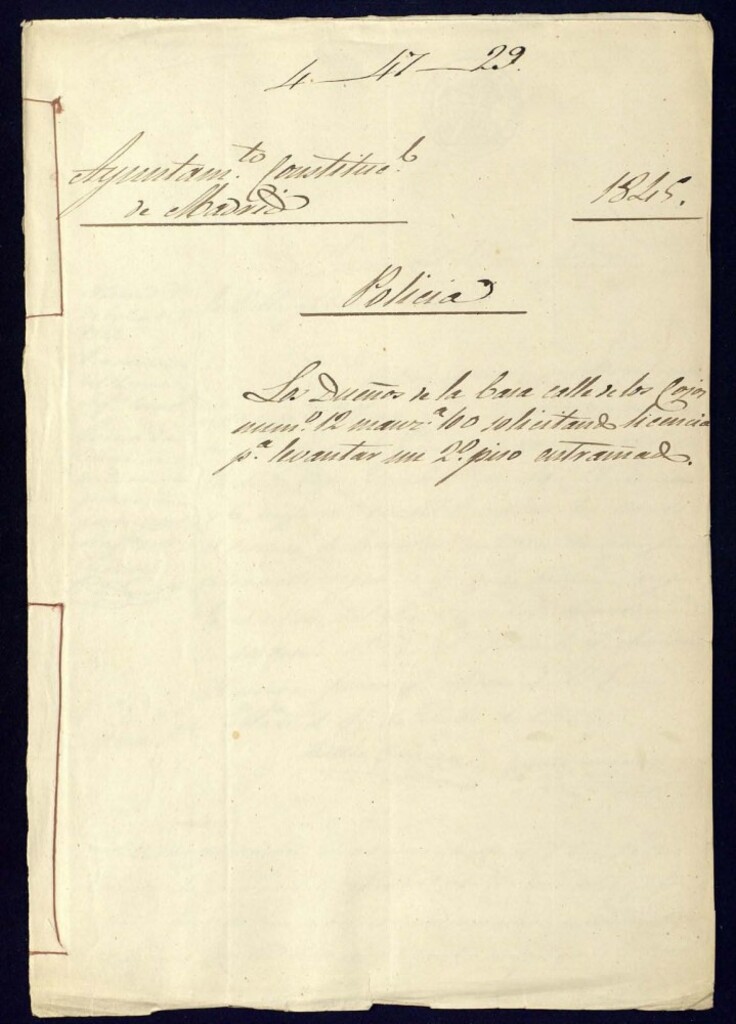 4 - 47 - 29.
Ayuntam.to Constituc.l
de Madrid
1845.
Policia
Los Dueños de la Casa calle de los Cojos
num.o 12 manz.a 60 solicitando licencia
p.a levantar un 2.o piso